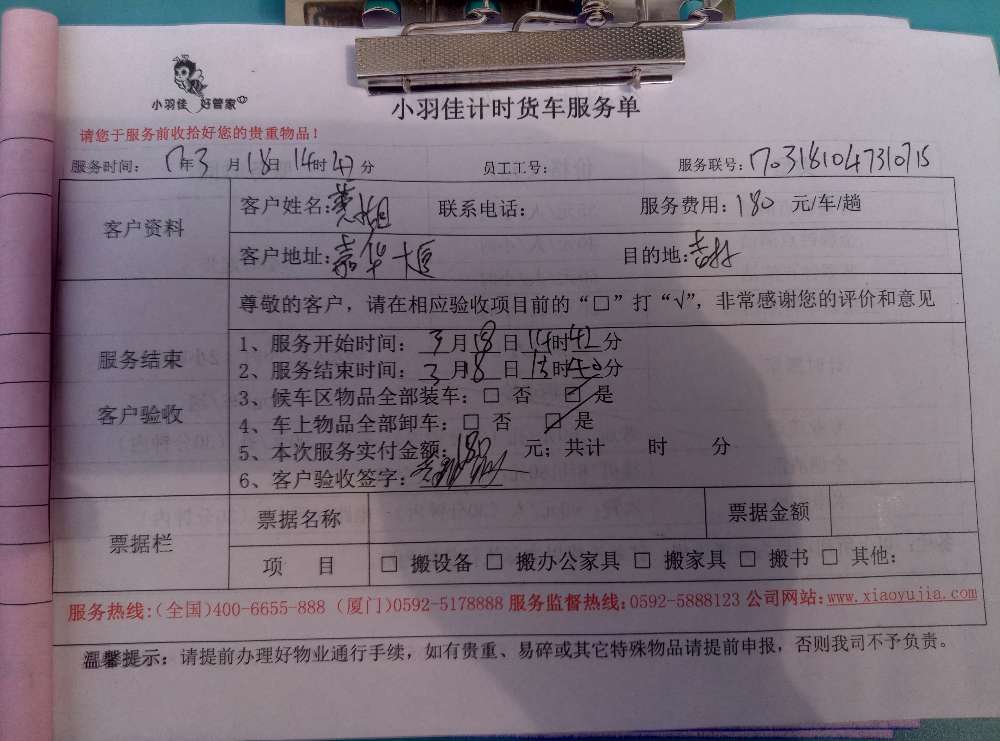 小羽佳 好管家
小羽佳计时货车服务单
请您于服务前收拾好您的贵重物品！
服务时间： 17年3月18日14时42分 员工工号： 服务联号：1703181047310715
客户资料
客户姓名： 联系电话： 服务费用：180 元/车/趟
客户地址：嘉华大 目的地：吉林
服务结束
客户验收
尊敬的客户，请在相应验收项目前的“□”打“√”，非常感谢您的评价和意见
1、服务开始时间：3月18日14时42分
2、服务结束时间：3月18日15时40分
3、候车区物品全部装车：□ 否 ☑ 是
4、车上物品全部卸车：□ 否 ☑ 是
5、本次服务实付金额：180 元；共计 时 分
6、客户验收签字：
票据栏
票据名称 票据金额
项 目 □ 搬设备 □ 搬办公家具 □ 搬家具 □ 搬书 □ 其他：
服务热线：(全国)400-6655-888 (厦门)0592-5178888 服务监督热线：0592-5888123 公司网站：www.xiaoyujia.com
温馨提示：请提前办理好物业通行手续，如有贵重、易碎或其它特殊物品请提前申报，否则我司不予负责。